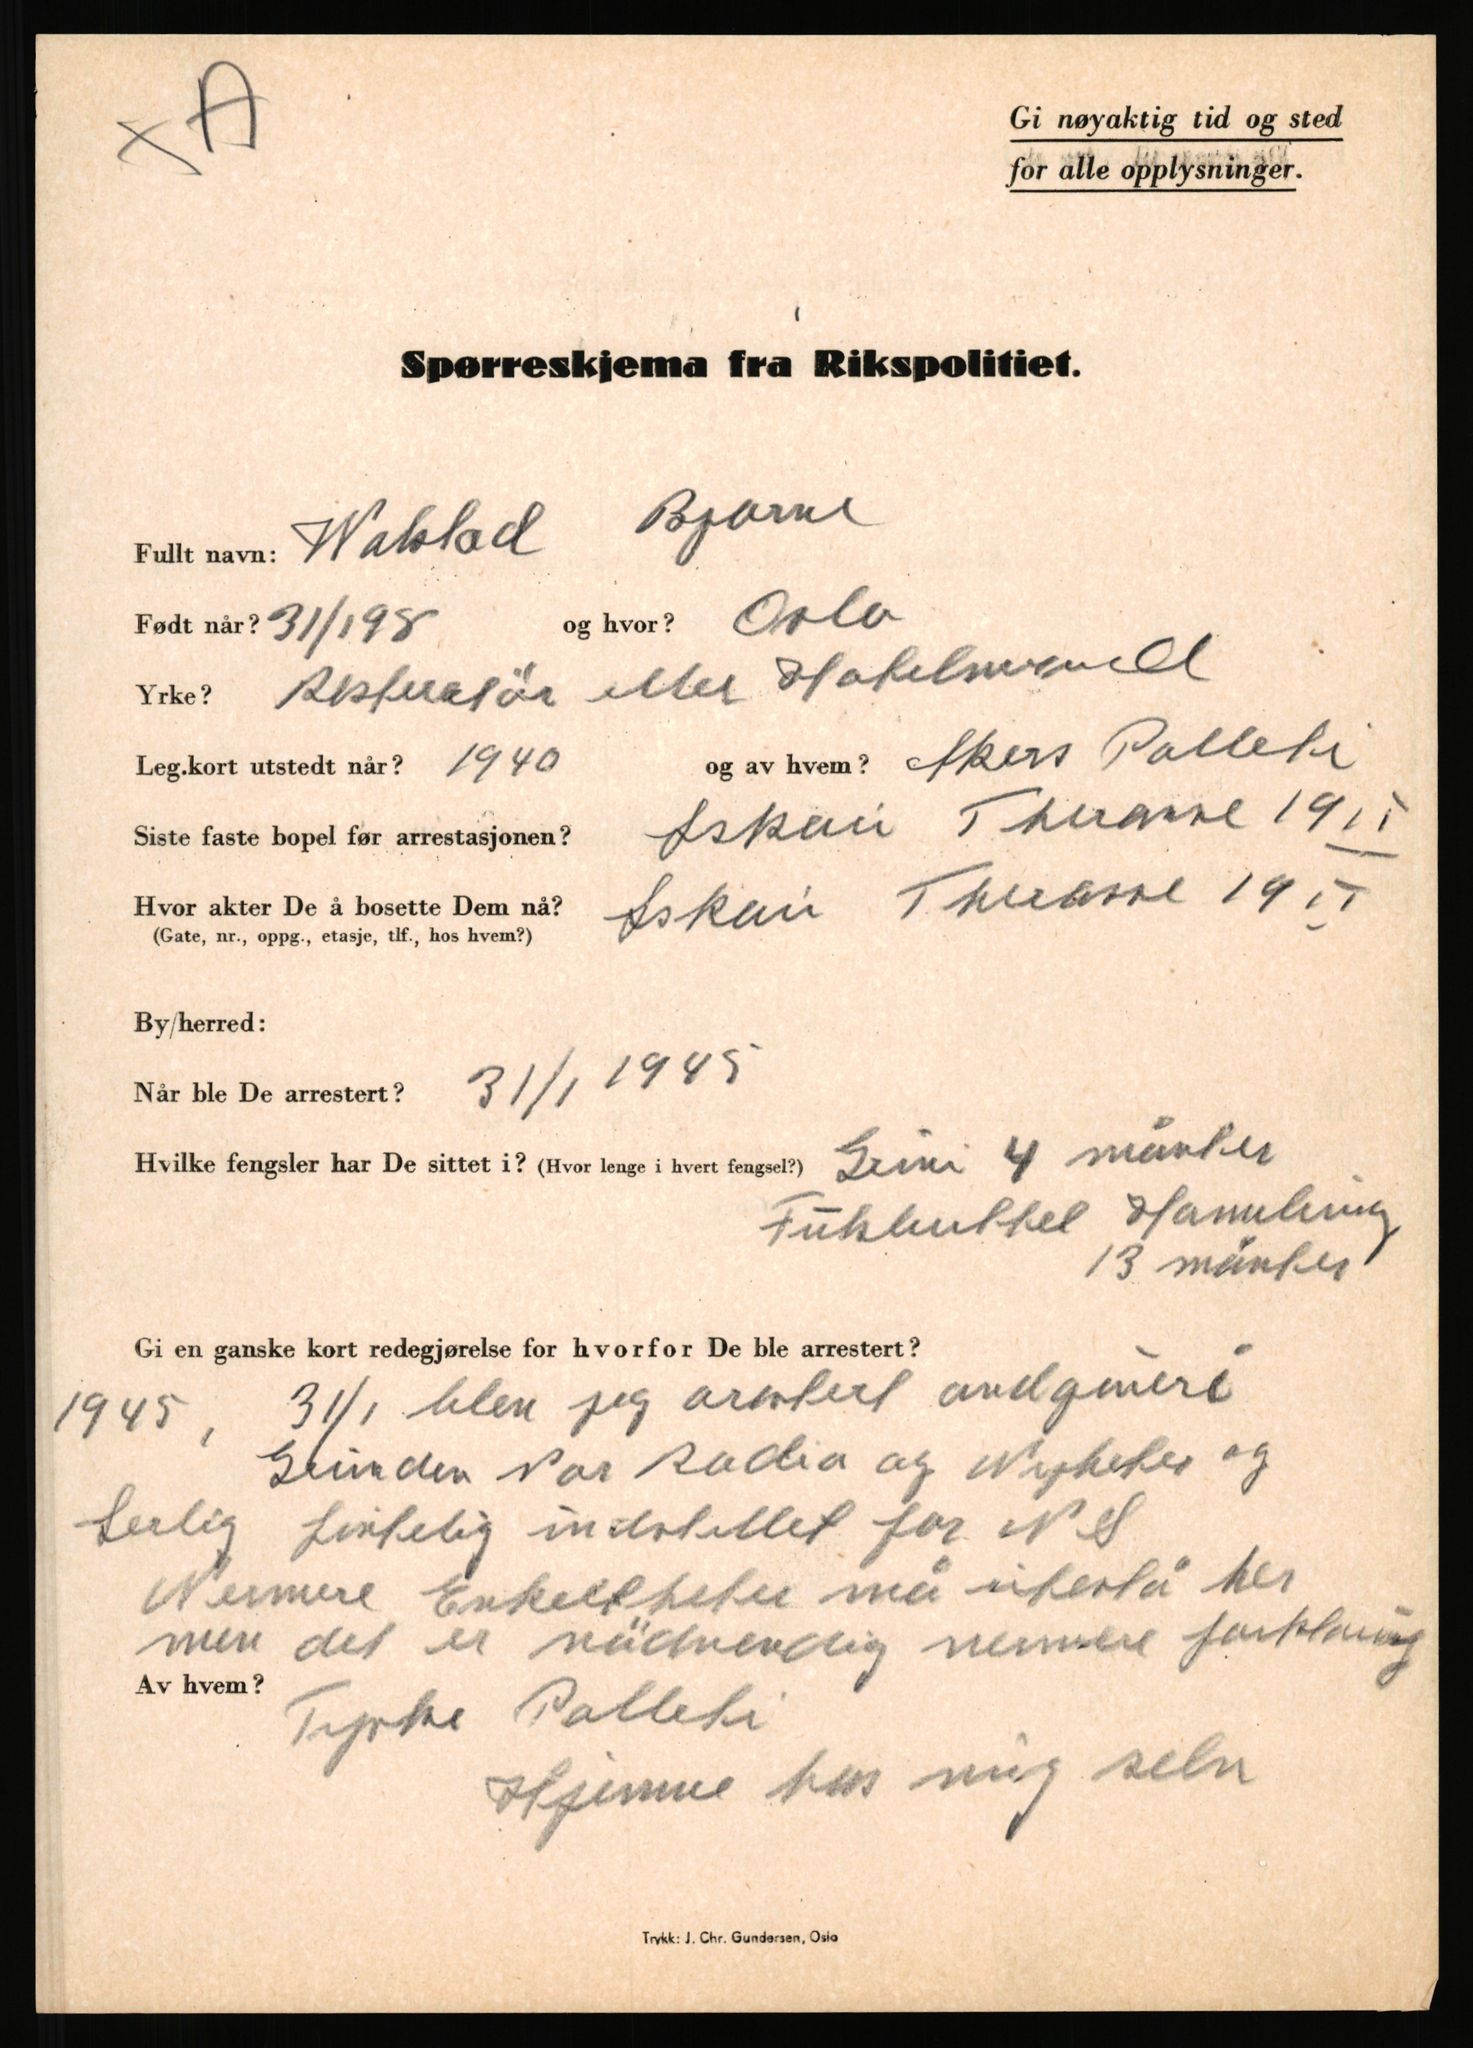 xA
Gi nøyaktig tid og sted
for alle opplysninger.
Spørreskjema fra Rikspolitiet.
Fullt navn: Walstad Bjarne
Født når? 31/1 98 og hvor? Oslo
Yrke? Resteratör eller Hotelmann
Leg.kort utstedt når? 1940 og av hvem? Akers Polleti
Siste faste bopel før arrestasjonen? Therasse 19 II
Hvor akter De å bosette Dem nå? Therasse 19 II
(Gate, nr., oppg., etasje, tlf., hos hvem?)
By/herred:
Når ble De arrestert? 31/1 1945
Hvilke fengsler har De sittet i? (Hvor lenge i hvert fengsel?) Grini 4 månter
Hamburg
13 månter
Gi en ganske kort redegjørelse for hvorfor De ble arrestert?
1945, 31/1 blev jeg arestert
Grunden var Radio og Nyheter og
Serlig fintelig indstillet for NS
Nermere Enkeltheter må utestå her
men det er nödvendig nermere forklaring
Av hvem? Tyske Polleti
Hjemme hos mig selv
Trykk: J. Chr. Gundersen, Oslo